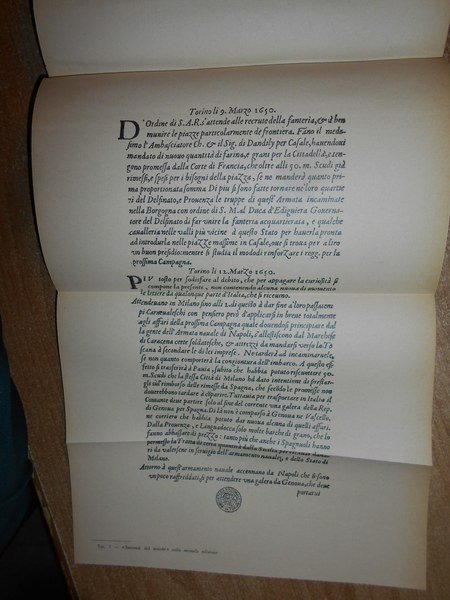 Torino li 9. Marzo 1650.
D'Ordine di S.A.R. s'attende alle recrute della fanteria, & à ben
munire le piazze particolarmente de frontiera. Fano il mede-
simo l'Ambasciatore Ch. & il Sig. di Dandily per Casale, havendoui
mandato di nuouo quantità di farina, e grani per la Cittadella, e ten-
gono premessa dalla Corte di Francia, che oltre alli 50. m. Scudi già
rimessi, e spesi per i bisogni della piazza, se ne manderà quanto pri-
ma proportionata somma Di piu si sono fatte tornare ne loro quartie
ri del Delfinato, e Prouenza le truppe di quest' Armata incaminate
nella Borgogna con ordine di S. M. al Duca
tore del Delfinato di far vnire la gente iui acquartierata, e qualche
cavalleria nelle valli più vicine à questo Stato per hauerla pronta
ad introdurla nelle piazze massime in Casale, oue si troua per altro
vn buon presidio: mentre si studia il modo di rinforzare i regg. per la
prossima Campagna.
Torino li 12. Marzo 1650.
PIV tosto per sodisfare al debito, che per appagare la curiosità si
compone la presente, non contenendo alcuna nuoua di
le lettere da qualonque parte d'Italia, che si riceuino.
Attendeuano in Milano sino alli
pi Carnualeschi con pensiero però d'applicarsi in breue totalmente
agli affari della prossima Campagna quale douendosi principiare dal
la gente dell'Armata nauale di Napoli, s'allestiscono dal Marchese
di Caracena certe soldatesche, & attrezzi da mandarsi verso la To
scana à secondare le di lei imprese. Ne tarderà ad incaminaruele,
se non quanto comporterà la congiontura dell'imbarco. A questo ef-
fetto si è trasferito à Pauia, subito che habbia potuto riscuotere 50.
m. Scudi che la stessa Città di Milano hà dato intentione di prestar-
gli sul rimborso delle rimesse da Spagna, che secondo le promesse non
dourebbono tardare à
Constante deue partir solo al fine del corrente vna galera della Rep.
di Genoua per Spagna. Di là non è comparso à Genoua ne Vascello,
ne corriere che habbia potuto dar nuoua alcuna di quelli affari.
Dalla Prouenza, e Linguadocca solo molte barche di grano, che in
fanno abbassare di prezzo: tanto più che anche i Spagnuoli hanno
permesso la Tratta di certa quantità dalla Sicilia per
di valersene in seruigio dell'armamento nauale, e dello Stato di
Milano.
Attorno à quest'armamento nauale accennano da Napoli che si sono
vn poco raffreddati, si per attendere vna galera da Genoua, che deue
portarui